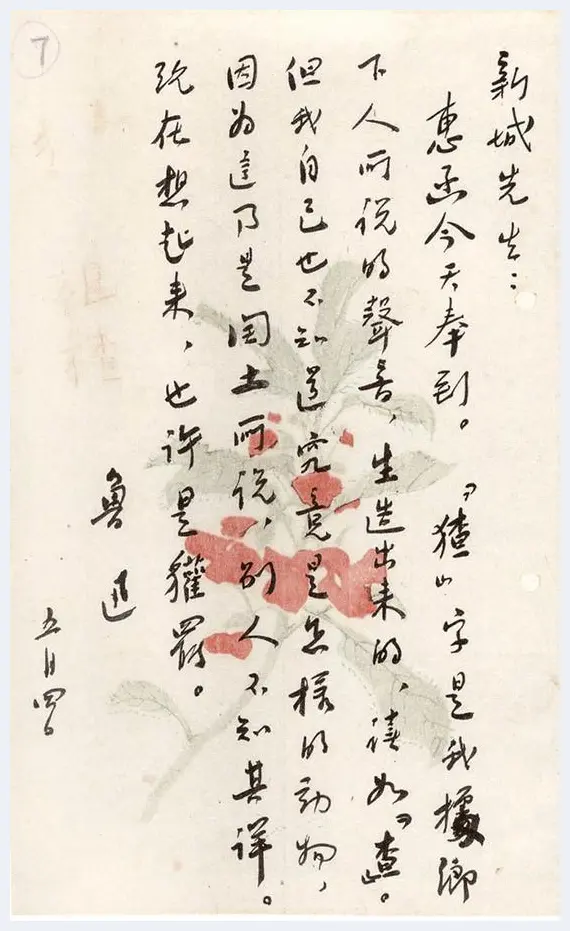 新城先生：
惠函今天奉到。『猹』字是我據鄉
下人所説的聲音，生造出来的，讀如『查』。
但我自己也不知道究竟是怎樣的動物，
因為這乃是閏土所説，別人不知其詳。
現在想起来，也許是貛罷。
魯迅
五月四日
7